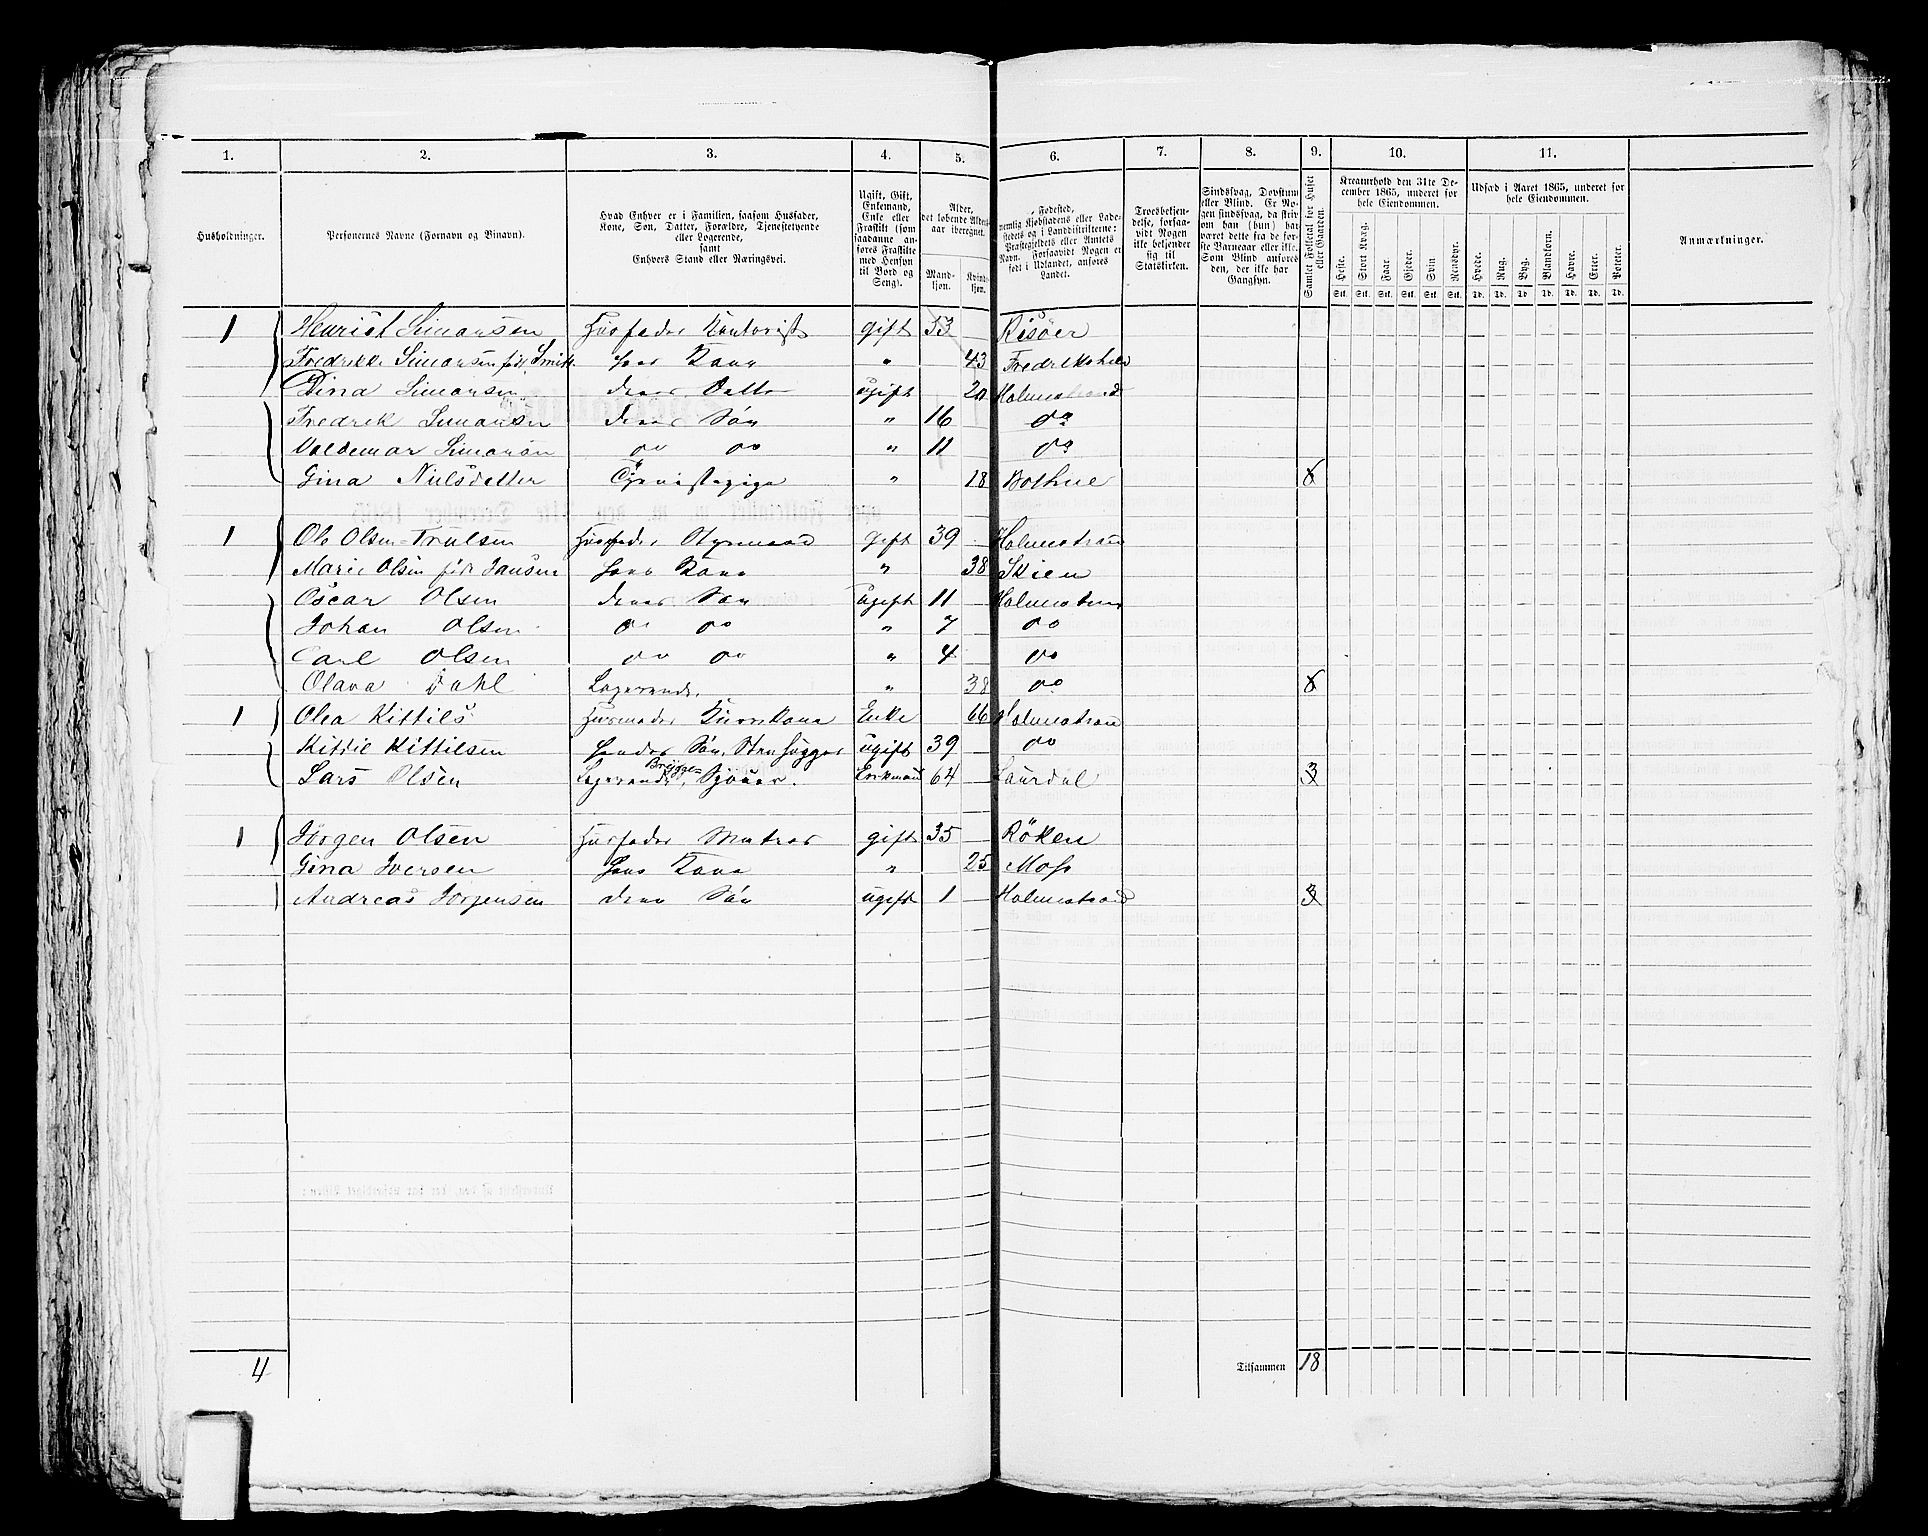 1. 2. 3. 4. 5. 6. 7. 8. 9. 10. 11.
Husholdninger.
Personernes Navne (Fornavn og Tilnavn).
Hvad Enhver er i Familien, saasom Husfader,
Kone, Søn, Datter, Forældre, Tjenestetyende
eller Logerende,
samt
Enhvers Stand eller Næringsvei.
Ugift, Gift,
Enkemand,
Enke eller
Fraskilt (som
saadanne an-
føres Fraskilte
med Hensyn
til Bord og
Seng).
Alder,
det løbende Alders-
aar iberegnet.
Mand-
kjøn.
Kvinde-
kjøn.
Fødested,
nemlig Kjøbstadens eller Lade-
stedets og i Landdistrikterne:
Præstegjeldets eller Amtets
Navn. Forsaavidt Nogen er
født i Udlandet, anføres
Landet.
Troesbekjen-
delse, forsaa-
vidt Nogen
ikke bekjender
sig til
Statskirken.
Sindssvag, Døvstum
eller Blind. Er No-
gen sindssvag, da skriv
om han (hun) har
været dette fra de før-
ste Barneaar eller ikke.
Som Blind anføres
den, der ikke har
Gangsyn.
Samlet Folketal for Huset
eller Gaarden.
Kreaturhold den 31te De-
cember 1865, underet for
hele Eiendommen.
Heste. Stort Kvæg. Faar. Gjeder. Svin Rensdyr.
Stk. Stk. Stk. Stk. Stk. Stk.
Udsæd i Aaret 1865, underet for
hele Eiendommen.
Hvede. Rug. Byg. Blandkorn. Havre. Erter. Poteter.
Td. Td. Td Td. Td. Td. Td.
Anmærkninger.
1 Henrik Simonsen Husfader Kontorist gift 53 Risöer
Fredrikke Simonsen född Smitt. hans Kone " 43 Fredrikshald
Dina Simonsen deres Datter ugift 20 Holmestrand
Fredrik Simonsen deres Søn " 16 do
Valdemar Simonsen do do " 11 do
Gina Nilsdatter Tjenestepige " 18 Bothne 6
1 Ole Olsen Trulsen Husfader Styrmand gift 39 Holmestrand
Marie Olsen född Jansen hans Kone " 38 Skien
Oscar Olsen deres Søn ugift 11 Holmestrand
Johan Olsen do do " 7 do
Carl Olsen do do " 4 do
Olava Dahl Logerende. " 38 do 6
1 Olea Kittils Husmoder Enke 66 Holmestrand
Kittil Kittilsen hendes Søn, Stenhugger ugift 39 do
Lars Olsen Logerende, Brygge Sjouer. Enkmand 64 Laurdal 3
1 Jörgen Olsen Husfader Matros gift 35 Röken
Gina Iversen hans Kone " 25 Moss
Andreas Jörgensen deres Søn ugift 1 Holmestrand 3
4 Tilsammen 18